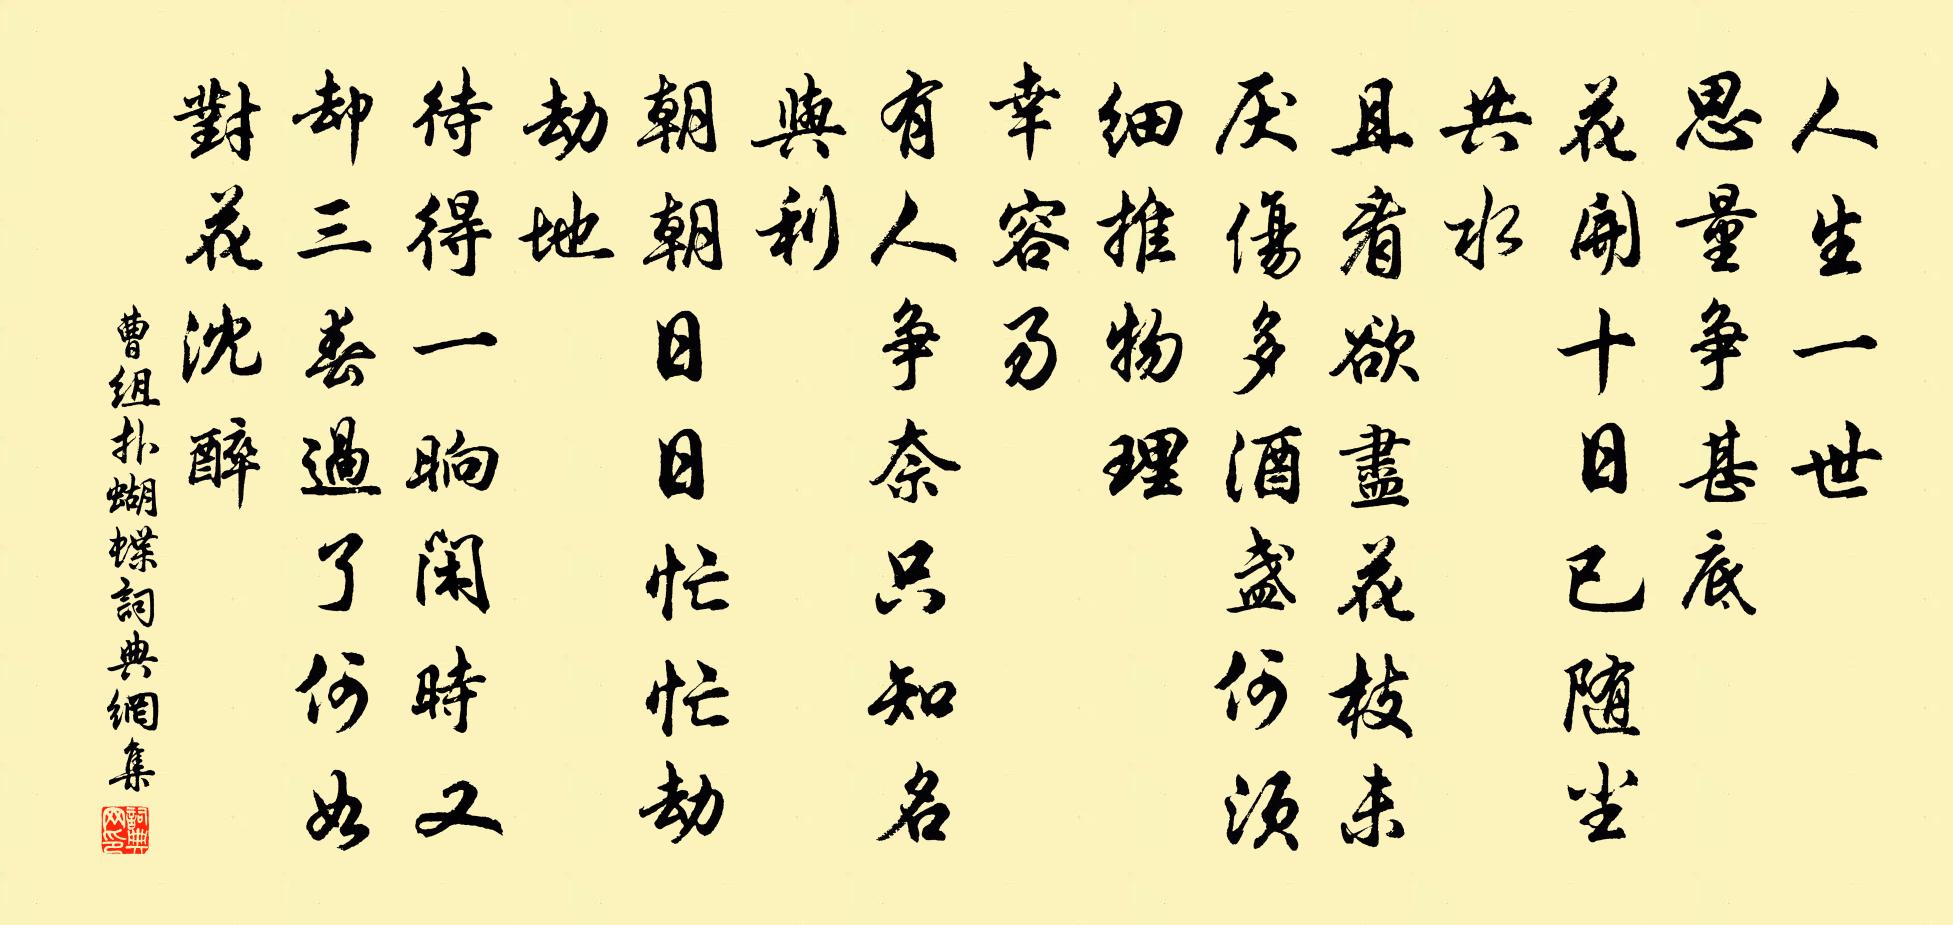 人生一世
思量争甚底
花開十日已随尘
共水
且看欲盡花枝未
厌傷多酒盏何须
细推物理
幸容易
有人争奈只知名
與利
朝朝日日忙忙劫
劫地
待得一晌闲時又
却三春過了何如
對花沈醉
曹组扑蝴蝶詞典網集
詞典网印